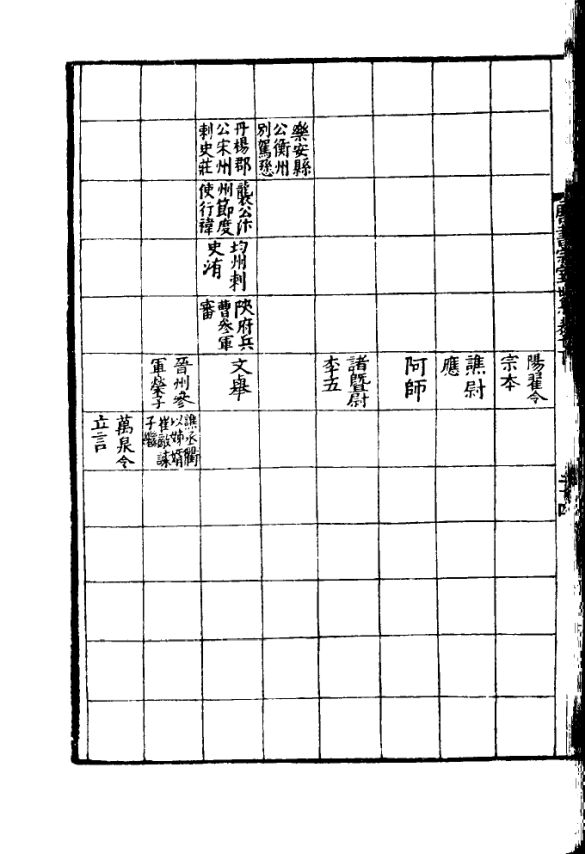 樂安縣
公衡州
別駕懸
丹楊郡
公宋州
刺史莊
襲公汴
州節度
使行禕
均州刺
史洧
陝府兵
曹參軍
審
陽翟令
宗本
譙尉
應
阿師
諸暨尉
李五
文舉
晉州參
軍榮子
譙丞衢
以姊婿
子繼
萬泉令
立言